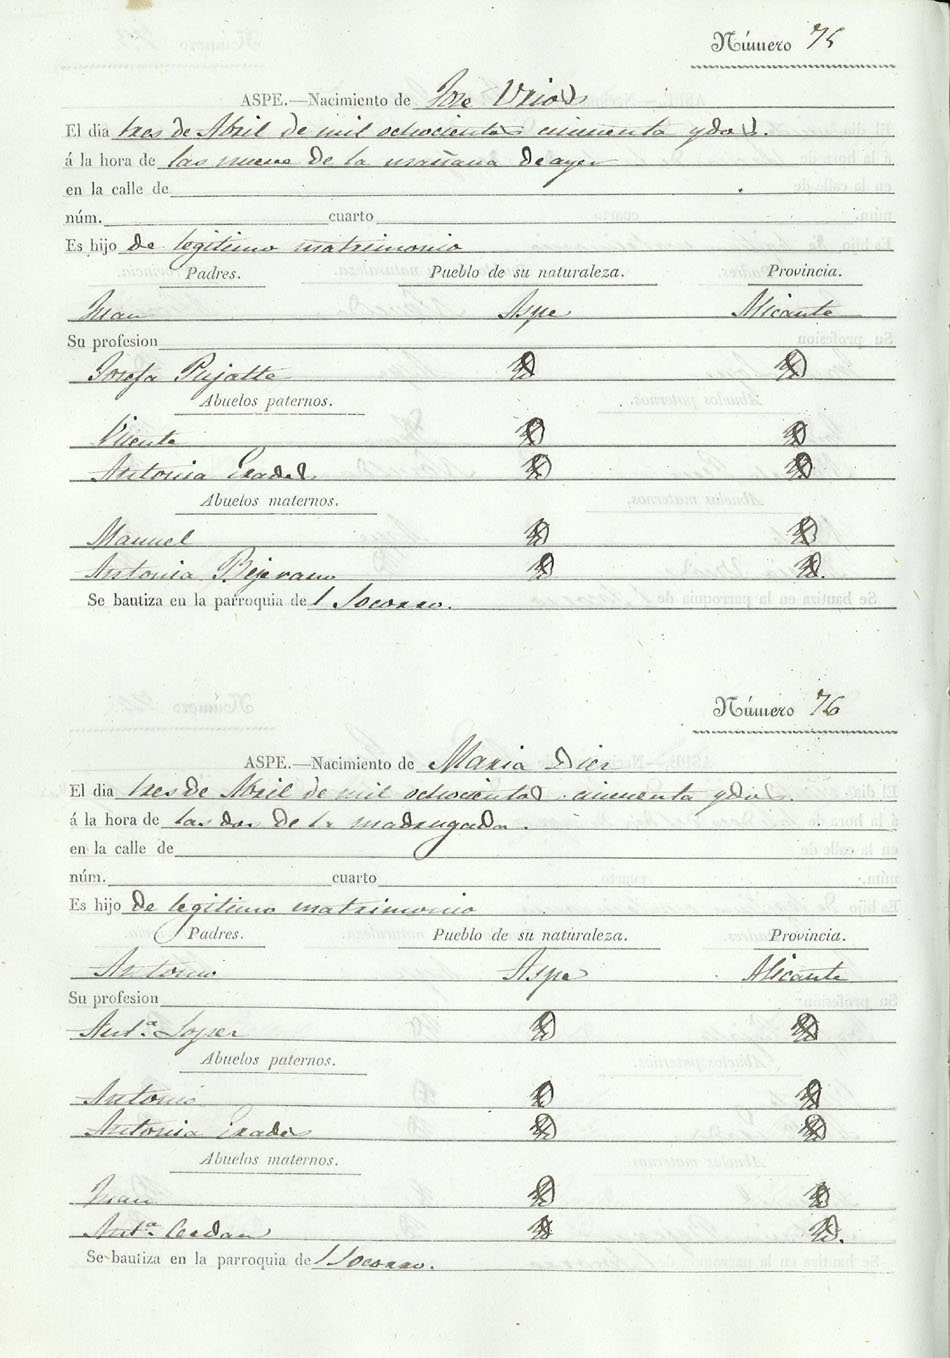 Número 75
ASPE.—Nacimiento de Jose Urios
El dia tres de Abril de mil ochocientos cincuenta y dos.
á la hora de las nueve de la mañana de ayer
en la calle de
núm. cuarto
Es hijo de legitimo matrimonio
Padres. Pueblo de su naturaleza. Provincia.
Juan Aspe Alicante
Su profesion
Josefa Pujalte
Abuelos paternos.
Vicente
Antonia
Abuelos maternos.
Manuel
Antonia Bejerano
Se bautiza en la parroquia del Socorro.
Número 76
ASPE.—Nacimiento de Maria Diez
El dia tres de Abril de mil ochocientos cincuenta y dos.
á la hora de las dos de la madrugada.
en la calle de
núm. cuarto
Es hijo de legitimo matrimonio
Padres. Pueblo de su naturaleza. Provincia.
Antonio Aspe Alicante
Su profesion
Antª Lopez
Abuelos paternos.
Antonio
Antonia
Abuelos maternos.
Juan
Antª
Se bautiza en la parroquia del Socorro.